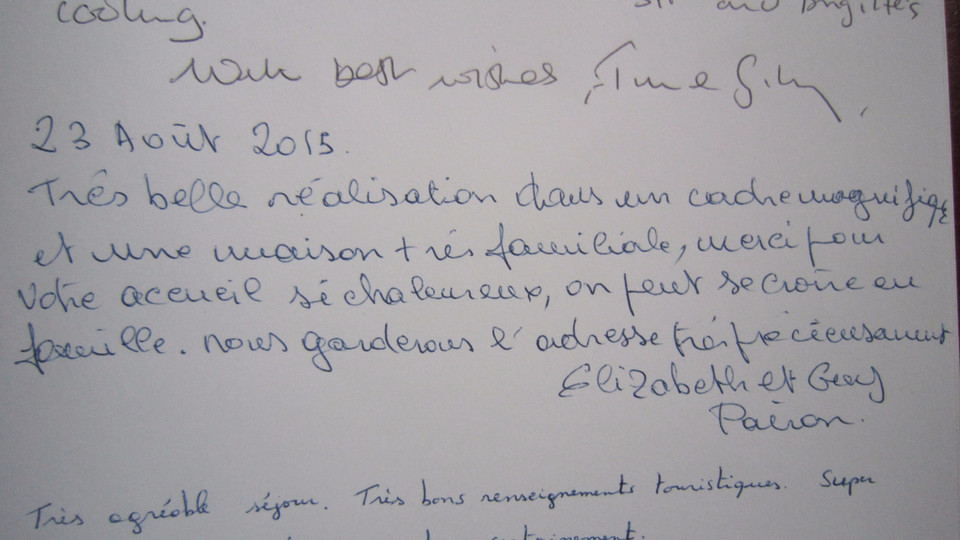 cooling. and Brigitte's
With best wishes,
23 Août 2015.
Très belle réalisation dans un cadre magnifique
et une maison très familiale, merci pour
votre accueil si chaleureux, on peut se croire en
famille. nous garderons l'adresse très précieusement
Elizabeth et Guy
Pairon.
Très agréable séjour. Très bons renseignements touristiques. Super